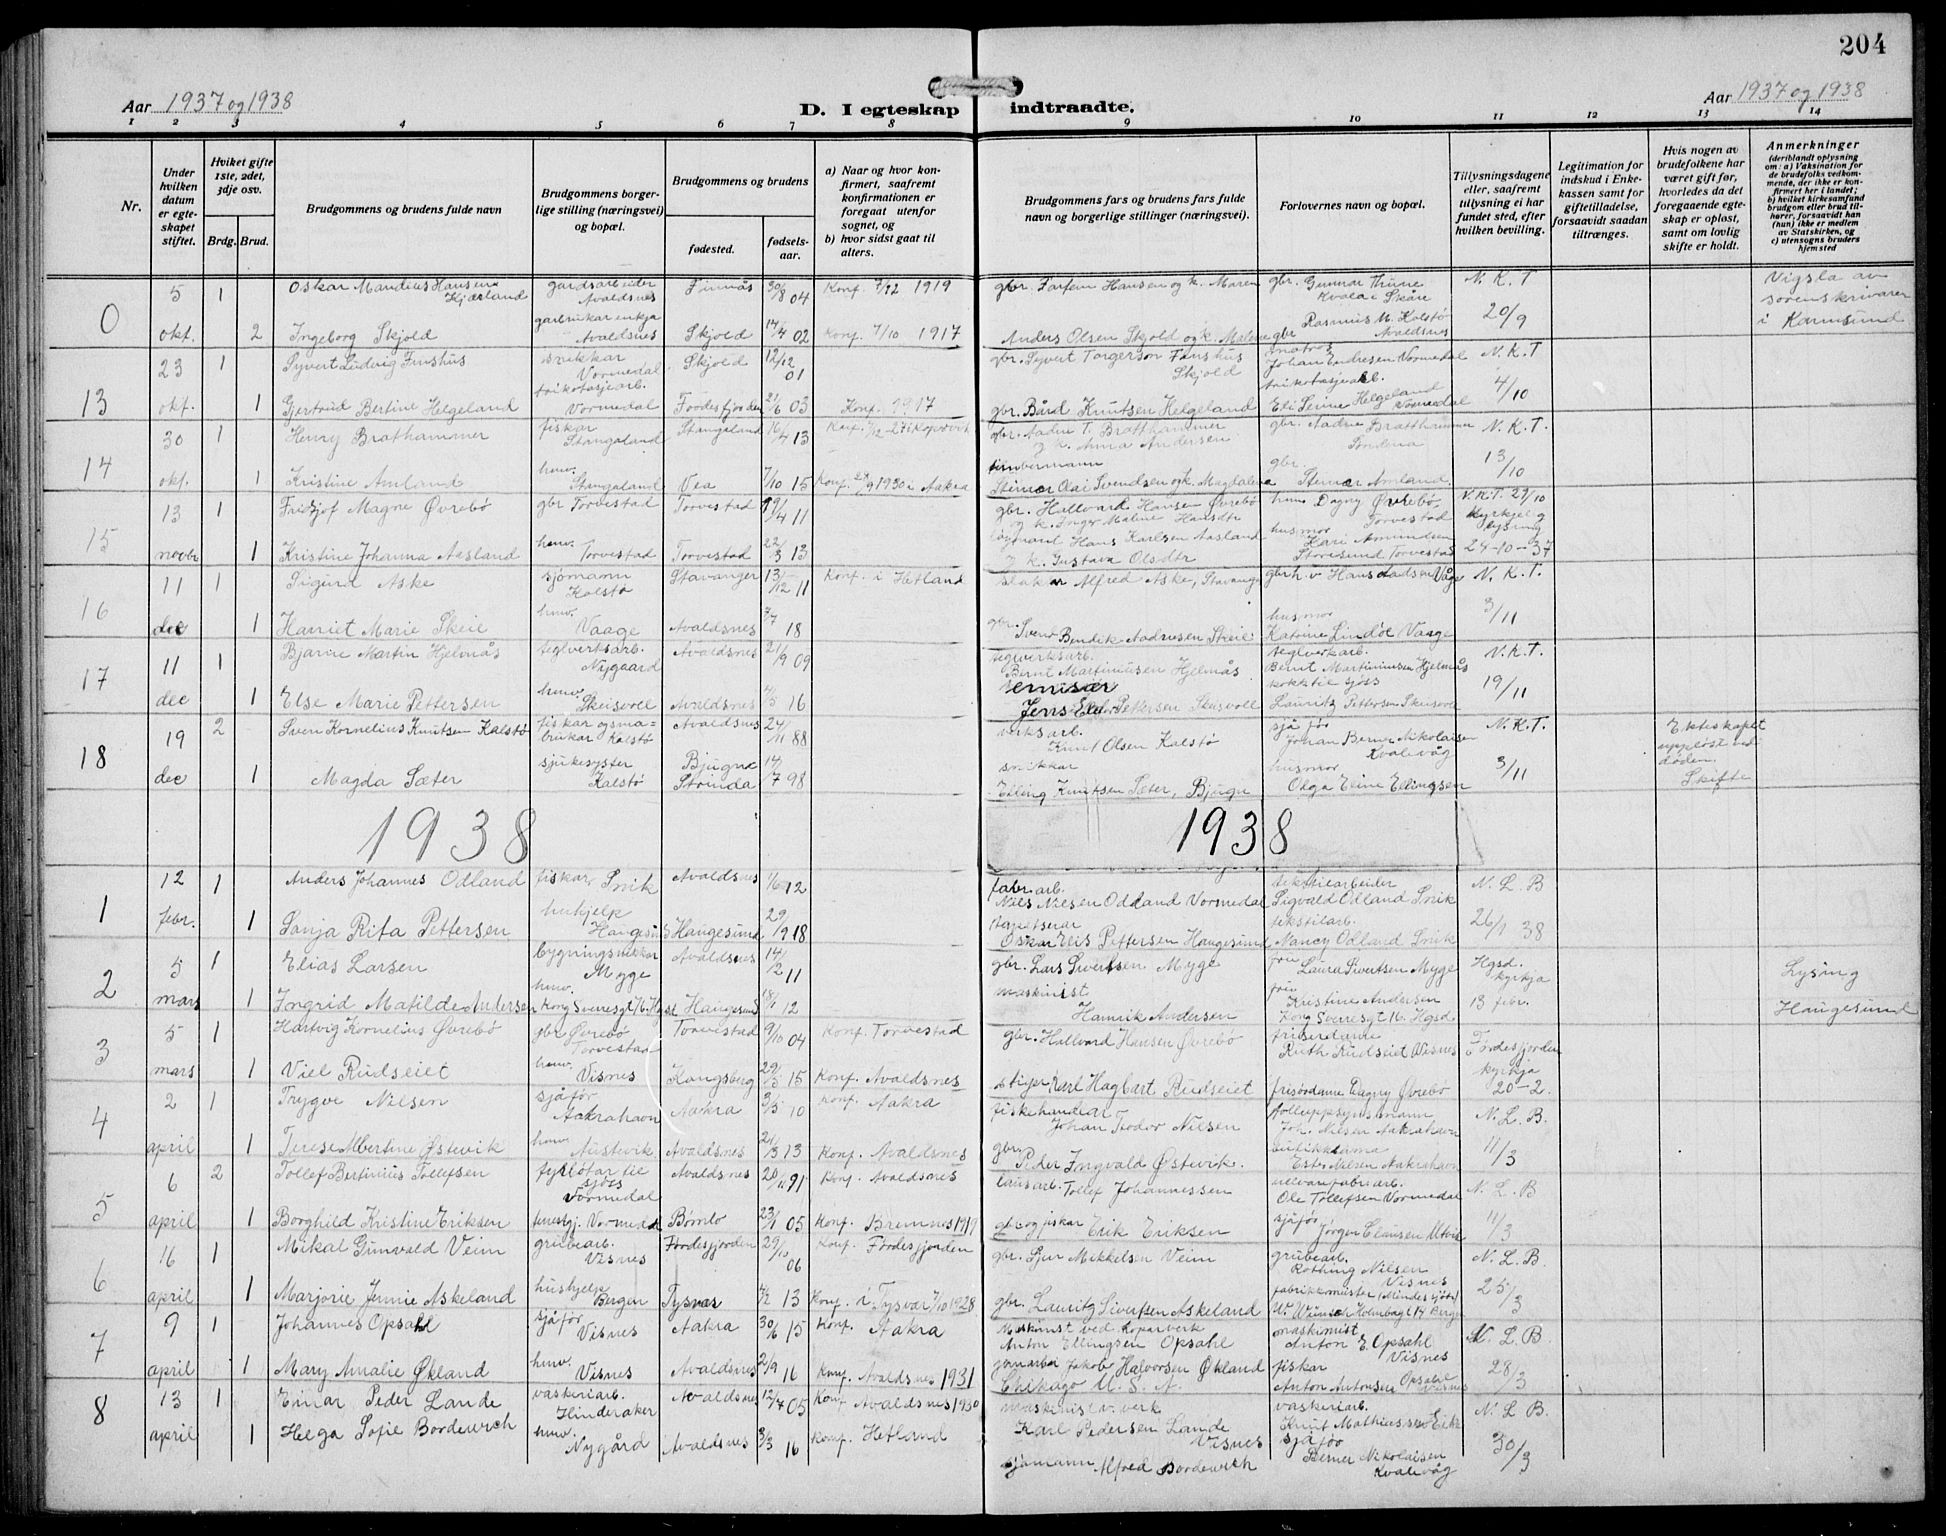 204
Aar 1937 og 1938
D. I egteskap indtraadte.
Aar 1937 og 1938
1 2 3 4 5 6 7 8 9 10 11 12 13 14
Nr.
Under hvilken datum er egteskapet stiftet.
Hvilket gifte 1ste, 2det, 3dje osv.
Brdg. Brud.
Brudgommens og brudens fulde navn
Brudgommens borgerlige stilling (næringsvei) og bopæl.
Brudgommens og brudens
fødested.
fødselsaar.
a) Naar og hvor konfirmert, saafremt konfirmationen er foregaat utenfor sognet, og
b) hvor sidst gaat til alters.
Brudgommens fars og brudens fars fulde navn og borgerlige stillinger (næringsvei).
Forlovernes navn og bopæl.
Tillysningsdagene eller, saafremt tillysning ei har fundet sted, efter hvilken bevilling.
Legitimation for indskud i Enkekassen samt for giftetilladelse, forsaavidt saadan tiltrænges.
Hvis nogen av brudefolkene har været gift før, hvorledes da det foregaaende egteskap er opløst, samt om lovlig skifte er holdt.
Anmerkninger
(deriblandt oplysning om: a) Vaksination for de brudefolks vedkommende, der ikke er konfirmert her i landet; b) hvilket kirkesamfund brudgom eller brud tilhører, forsaavidt han (hun) ikke er medlem av Statskirken, og c) utensogns bruders hjemsted
0 5 1 Oskar Mandius Hansen Kjærland gardsarbeider Avaldsnes Finnås 30/8 04 Konf. 7/12 1919 gbr. Torfein Hansen og k. Maren gbr. Gunnar Thune Kvala i Skåre N. K. T Vigsla av sorenskrivaren i Karmsund
okt. 2 Ingeborg Skjold gardbrukarenkja Avaldsnes Skjold 17/4 02 Konf. 7/10 1917 Anders Olsen Skjold og k. Malene gbr Rasmus M. Kolstø Avaldsnes 20/9
13 23 1 Syvert Ludvig Finshus snikkar Vormedal Skjold 12/12 01 gbr. Syvert Torgersen Finshus Skjold matros Johan Endresen Vormedal N. K. T
okt. 1 Gjertrud Bertine Helgeland trikotasjearb. Vormedal Fördesfjorden 21/6 03 Konf. 1917 gbr. Bård Knutsen Helgeland trikotasjearb. Eli Seine Helgeland Vormedal 4/10
14 30 1 Henry Bratthammer fiskar Stangaland Stangaland 16/4 13 Konf. 7/12-27 i Kopervik gbr. Aadne T. Bratthammer og k. Anna Andersen gbr. Aadne Bratthammer N. K. T.
okt. 1 Kristine Amland husv. Stangaland Vea 7/10 15 Konf. 28/9 1930 i Aakra timbermann Steinar Olai Svendsen og k. Magdalena gbr Steinar Amland 13/10
15 13 1 Fridtjof Magne Øvrebø gbr Torvestad Torvestad 19/4 11 gbr. Hallvard Hansen Øvrebø og k. Inger Maline Hansdtr husm Dagny Øvrebø Torvestad N. K. T. 29/10 kyrkjeleg lysing
novbr 1 Kristine Johanna Aasland husv. Torvestad Torvestad 22/3 13 Hans Karlsen Aasland og k. Gustava Olsdtr husmor Kari Amundsen Storesund Torvestad 24-10-37
16 11 1 Sigurd Aske sjømann Kolstø Stavanger 13/12 11 Konf. i Hetland slakar Alfred Aske, Stavanger N. K. T.
dec 1 Harriet Marie Skeie husv. Vaage Avaldsnes 7/7 18 gbr. Svend Bendik Aadnesen Skeie husmor Katrine Lindøe Vaage 3/11
17 11 1 Bjarne Martin Hjelmås teglverksarb. Nygaard Avaldsnes 21/9 09 teglverksarb. Bernt Martiniusen Hjelmås teglverkarb. Bernt Martiniusen Hjelmås N. K. T.
dec 1 Else Marie Pettersen husv. Skeisvoll Avaldsnes 4/5 16 Jens Pettersen Skeisvoll kokk til sjøss Lauritz Pettersen Skeisvoll 19/11
18 19 2 Sven Kornelius Knutsen Kalstø fiskar og småbrukar Kalstø Avaldsnes 24/11 88 Knut Olsen Kalstø sjåfør Johan Berner Nikolaisen Kvalevåg N. K. T. Ekteskapet uppløst ved døden. Skifte
dec 1 Magda Sæter sjukesyster Kalstø Bjugn Strinda 14/7 98 snikkar Elling Knutsen Sæter, Bjugn husmor Olga Eline Ellingsen 3/11
1938 1938
1 12 1 Anders Johannes Odland fiskar Snik Avaldsnes 1/6 12 fabr. arb. Nils Nilsen Odland Vormedal tekstilarbeider Sigvald Odland Snik N. L. B
febr. 1 Sonja Rita Pettersen hushjelp Haugesund Haugesund 29/9 18 tapetserar Oskar Pettersen Haugesund tekstilarb. Nancy Odland Snik 26/1 38
2 5 1 Elias Larsen bygningssnikkar Myge Avaldsnes 14/2 11 gbr. Lars Sivertsen Myge Laura Sivertsen Myge Hgsd. kyrkja Lysing
mars 1 Ingrid Matilde Andersen husv. Kong Sverresgt 16. Hgsd Haugesund 18/1 12 maskinist Henrik Andersen Kristine Andersen Kong Sverresgt 16. Hgsd. 13 febr. Haugesund
3 5 1 Hartvig Kornelius Øvrebø gbr Øvrebø Torvestad Torvestad 9/10 04 Konf. Torvestad gbr. Hallvard Hansen Øvrebø friserdame Ruth Rudseiet Visnes Fördesfjorden kyrkja
mars 1 Viel Rudseiet husv. Visnes Kongsberg 29/5 15 Konf. Avaldsnes stiger Karl Hagbart Rudseiet frisördame Dagny Øvrebø 20-2.
4 2 1 Trygve Nilsen sjåför Aakrahavn Aakra 3/5 10 Konf. Aakra fiskehandlar Johan Teodor Nilsen tolluppsynsmann Joh. Nilsen Aakrahavn N. L. B.
april 1 Terese Albertine Østevik husv. Austevik Avaldsnes 21/3 13 Konf. Avaldsnes gbr. Peder Ingvald Østevik. butikkdama Ester Nilsen Aakrahavn 11/3
5 6 2 Tollef Bertinius Tollefsen fyrbötar til sjöss Vormedal Avaldsnes 20/11 91 Konf. Avaldsnes lausarb. Tollef Johannessen Ole Tollefsen Vormedal N. L. B
april 1 Borghild Kristine Eriksen Vormedal Bømlo 23/1 05 Konf. Bremnes 1919 gbr og fiskar Erik Eriksen sjåför Jörgen Clausen Utvik 11/3
6 16 1 Mikal Gunvald Veim grubearb. Visnes Fördesfjorden 29/10 06 Konf. Fördesfjorden gbr. Sjur Mikkelsen Veim grubearb. Rothing Nilsen Visnes N. L. B.
april 1 Marjorie Jennie Askeland hushjelp Bergen Tysvær 4/2 13 Konf. i Tysvær 7/10 1928 gbr. Lauritz Sivertsen Askeland fabrikkmester 25/3
7 9 1 Johannes Opsahl sjåför Visnes Aakra 30/6 15 Konf. Aakra Maskinist ved koparverk Anton Ellingsen Opsahl maskinist Anton E. Opsahl Visnes N. L. B.
april 1 Mary Amalie Økland husv. Visnes Avaldsnes 2/9 11 Konf. Avaldsnes 1931 Jakob Halvorsen Økland Chikago U. S. A. fiskar Anton Antonsen Opsahl Visnes 28/3
8 13 1 Einar Peder Lande vaskeriarb. Hinderaker Avaldsnes 12/7 05 Konf Avaldsnes 1920 maskinist v. verk Karl Pedersen Lande Visnes vaskeriarb. Knut Mathiassen Eike N. L B.
april 1 Helga Sofie Bordewich husv. Nygård Avaldsnes 3/3 16 Konf. Hetland sjömann Alfred Bordewich sjåför Berner Nikolaisen Kvalevåg 30/3